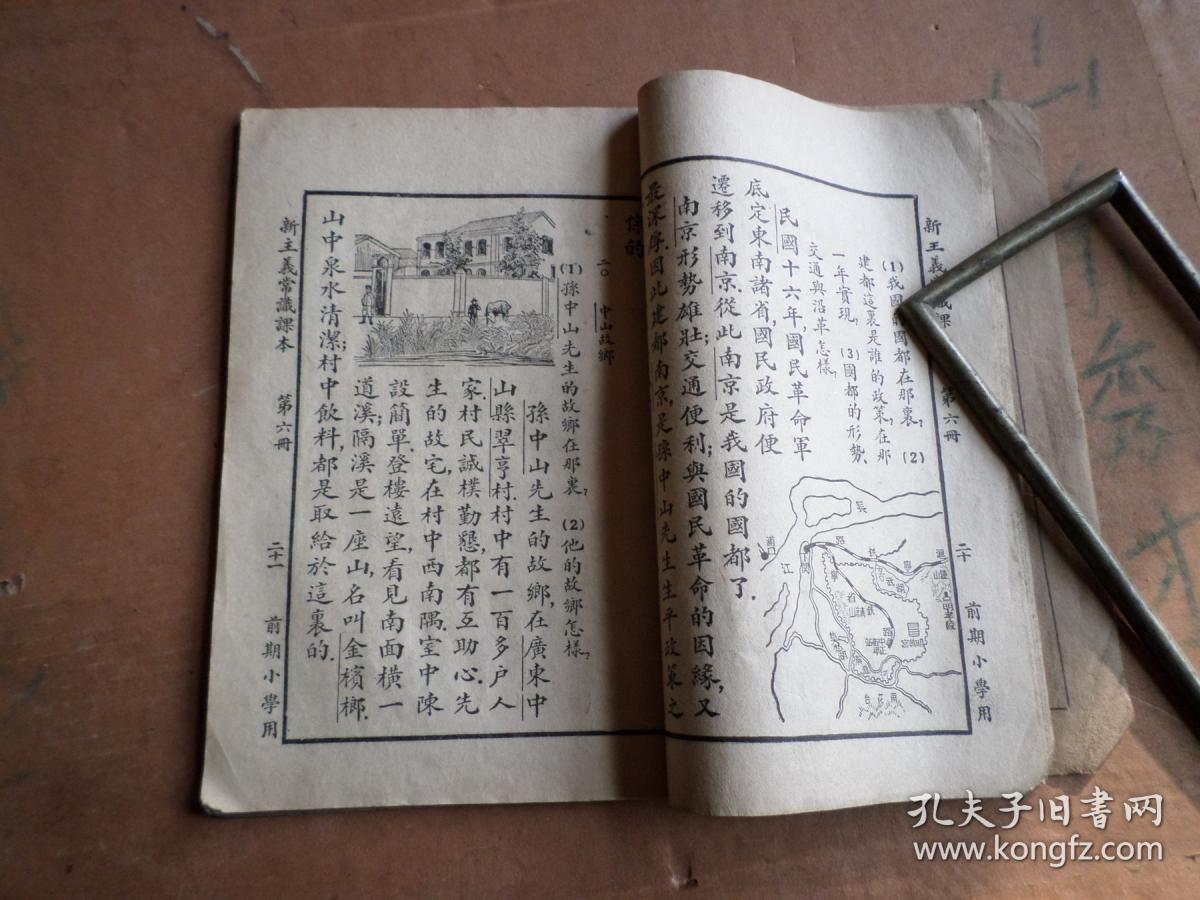 新主義常識課本 第六冊 二十 前期小學用
(1)我國國都在那裏? (2)
建都這裏是誰的政策?在那
一年實現? (3)國都的形勢、
交通與沿革怎樣?
民國十六年,國民革命軍
底定東南諸省,國民政府便
遷移到南京.從此南京是我國的國都了.
南京形勢雄壯;交通便利;與國民革命的因緣,又
最深厚.因此建都南京,是孫中山先生生平政策之
長
江
浦口
下關
路
明孝陵
故宮
雨花台
二〇 中山故鄉
(1)孫中山先生的故鄉在那裏? (2)他的故鄉怎樣?
孫中山先生的故鄉,在廣東中
山縣翠亨村.村中有一百多户人
家.村民誠樸勤懇,都有互助心.先
生的故宅,在村中西南隅.室中陳
設簡單.登樓遠望,看見南面橫一
道溪;隔溪是一座山,名叫金檳榔.
山中泉水清潔;村中飲料,都是取給於這裏的.
新主義常識課本 第六冊 二十一 前期小學用
孔夫子旧书网
www.kongfz.com